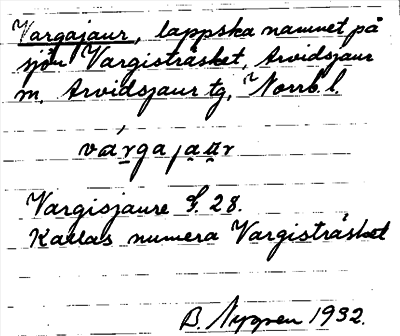 Vargajaur, lappska namnet på
sjön Vargisträsket, Arvidsjaur
m, Arvidsjaur tg, Norrb. l.
várgajaur
Vargisjaure G. 28.
Kallas numera Vargisträsket
B. Nygren 1932.